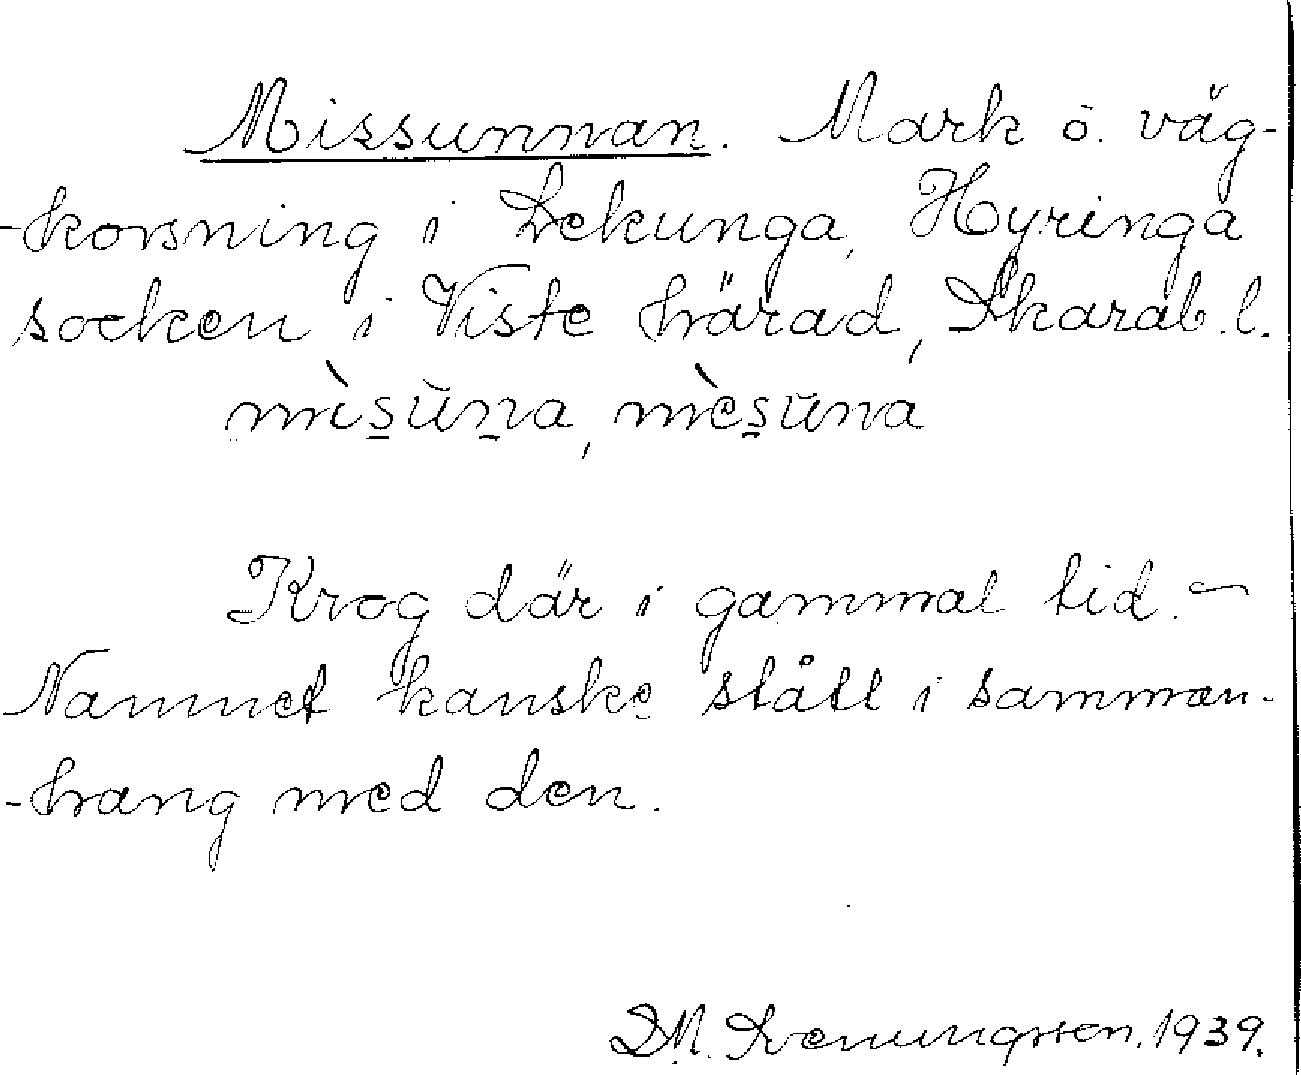 Missunnan. Mark o. väg-
-korsning i Lekunga, Hyringa
socken i Viste härad, Skarab. l.
mìs̲ŭn̲a, mès̲ŭna
Krog där i gammal tid. —
Namnet kanske stått i samman-
-hang med den.
1939.